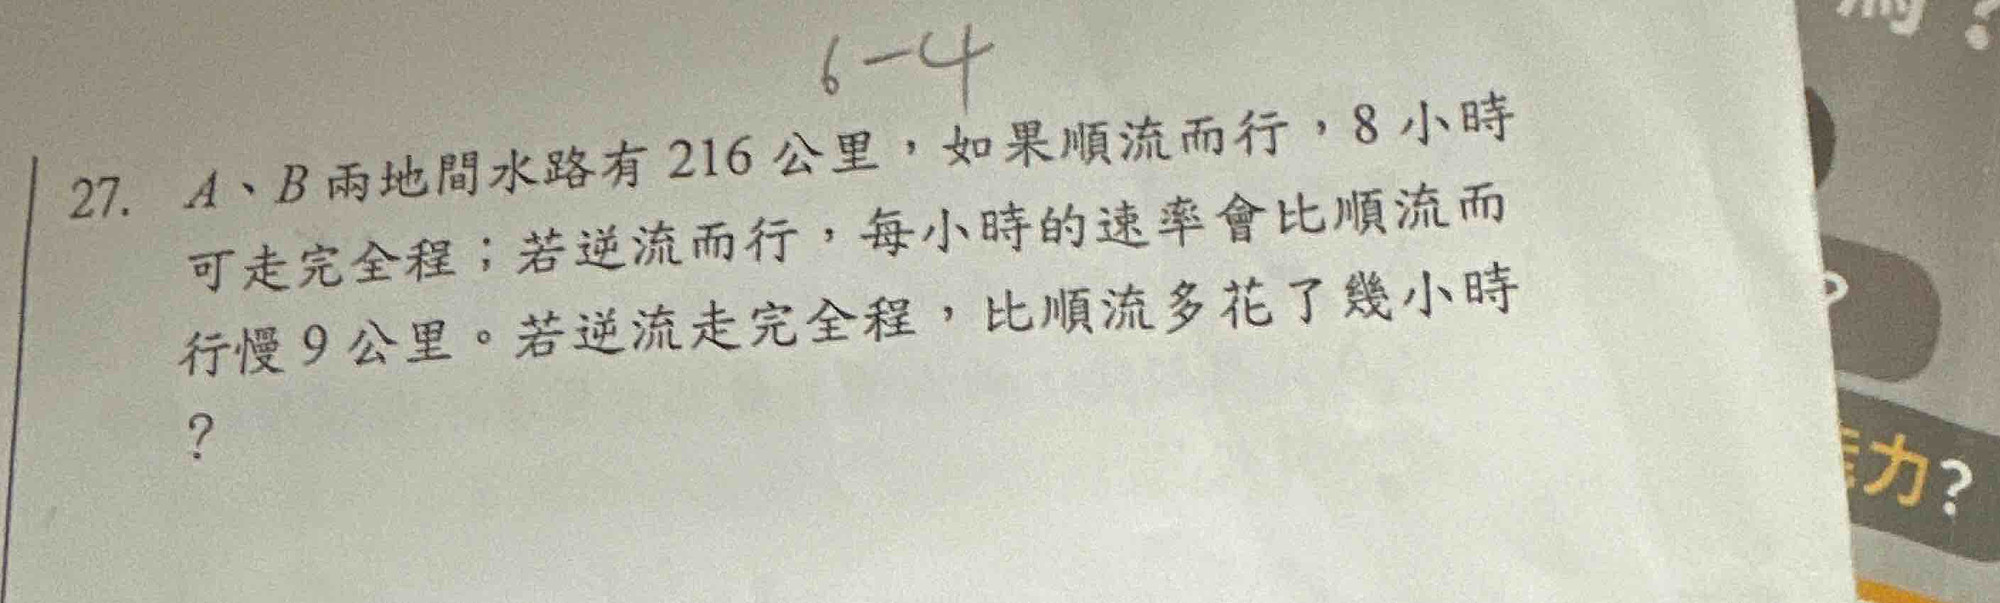 6-4
27. A、B兩地間水路有216公里，如果順流而行，8小時
可走完全程；若逆流而行，每小時的速率會比順流而
行慢9公里。若逆流走完全程，比順流多花了幾小時
？
？
？
力？